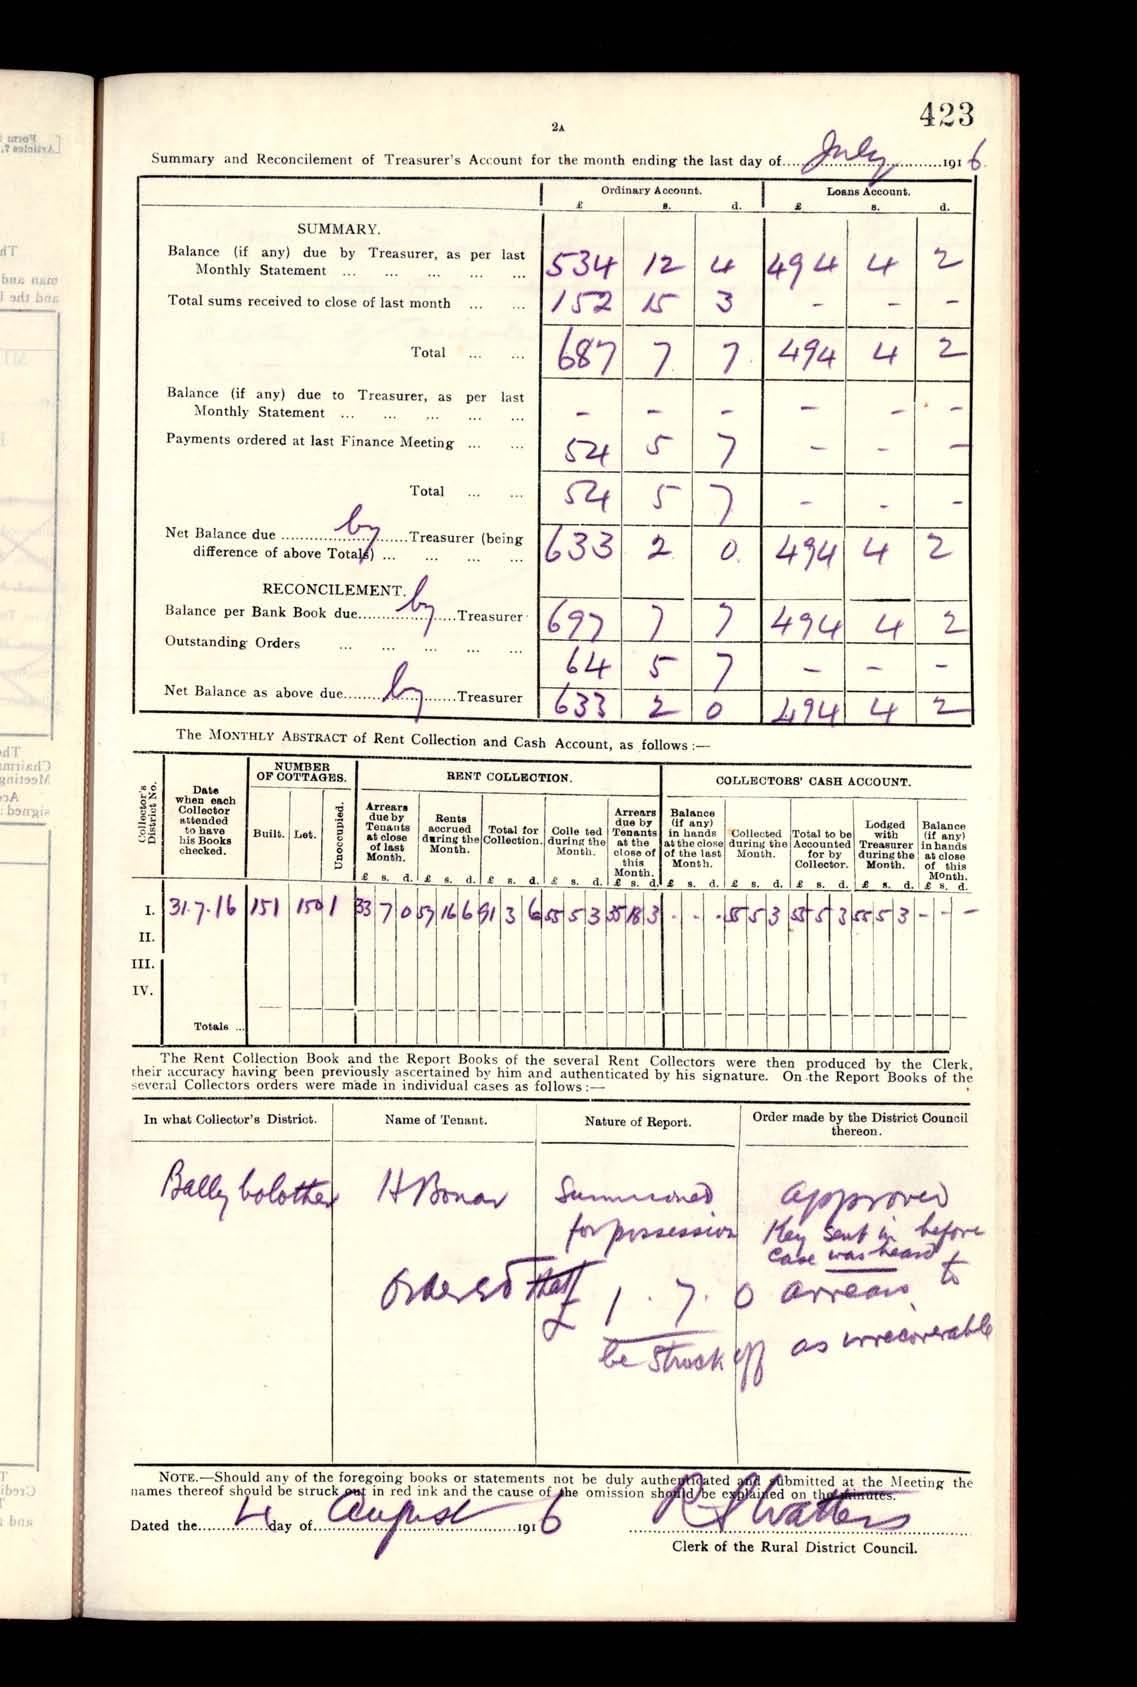 423
2A
Summary and Reconcilement of Treasurer's Account for the month ending the last day of July 1916.
Ordinary Account. Loans Account.
£ s. d. £ s. d.
SUMMARY.
Balance (if any) due by Treasurer, as per last
Monthly Statement ... 534 12 4 494 4 2
Total sums received to close of last month ... 152 15 3 - - -
Total ... 687 7 7 494 4 2
Balance (if any) due to Treasurer, as per last
Monthly Statement ... - - - - - -
Payments ordered at last Finance Meeting ... 54 5 7 - - -
Total ... 54 5 7 - - -
Net Balance due by Treasurer (being
difference of above Totals) ... 633 2 0 494 4 2
RECONCILEMENT.
Balance per Bank Book due by Treasurer 697 7 7 494 4 2
Outstanding Orders ... 64 5 7 - - -
Net Balance as above due by Treasurer 633 2 0 494 4 2
The MONTHLY ABSTRACT of Rent Collection and Cash Account, as follows :—
Collector's District No.
Date when each Collector attended to have his Books checked.
NUMBER OF COTTAGES.
Built. Let. Unoccupied.
RENT COLLECTION.
Arrears due by Tenants at close of last Month.
Rents accrued during the Month.
Total for Collection.
Colle ted during the Month.
Arrears due by Tenants at the close of this Month.
COLLECTORS' CASH ACCOUNT.
Balance (if any) in hands at the close of the last Month.
Collected during the Month.
Total to be Accounted for by Collector.
Lodged with Treasurer during the Month.
Balance (if any) in hands at close of this Month.
£ s. d. £ s. d. £ s. d. £ s. d. £ s. d. £ s. d. £ s. d. £ s. d. £ s. d. £ s. d.
I. 31.7.16 151 150 1 33 7 0 57 16 6 91 3 6 55 5 3 35 18 3 - - - 55 5 3 55 5 3 55 5 3 - - -
II.
III.
IV.
Totals ...
The Rent Collection Book and the Report Books of the several Rent Collectors were then produced by the Clerk,
their accuracy having been previously ascertained by him and authenticated by his signature. On the Report Books of the
several Collectors orders were made in individual cases as follows :—
In what Collector's District. Name of Tenant. Nature of Report. Order made by the District Council thereon.
H Bonar Summoned approved
for possession Key sent in before
case was heard
Ordered that £1.7.0 arrears to
be struck off as irrecoverable
NOTE.—Should any of the foregoing books or statements not be duly authenticated and submitted at the Meeting the
names thereof should be struck out in red ink and the cause of the omission should be explained on the minutes.
Dated the 4 day of August 1916 Watters
Clerk of the Rural District Council.